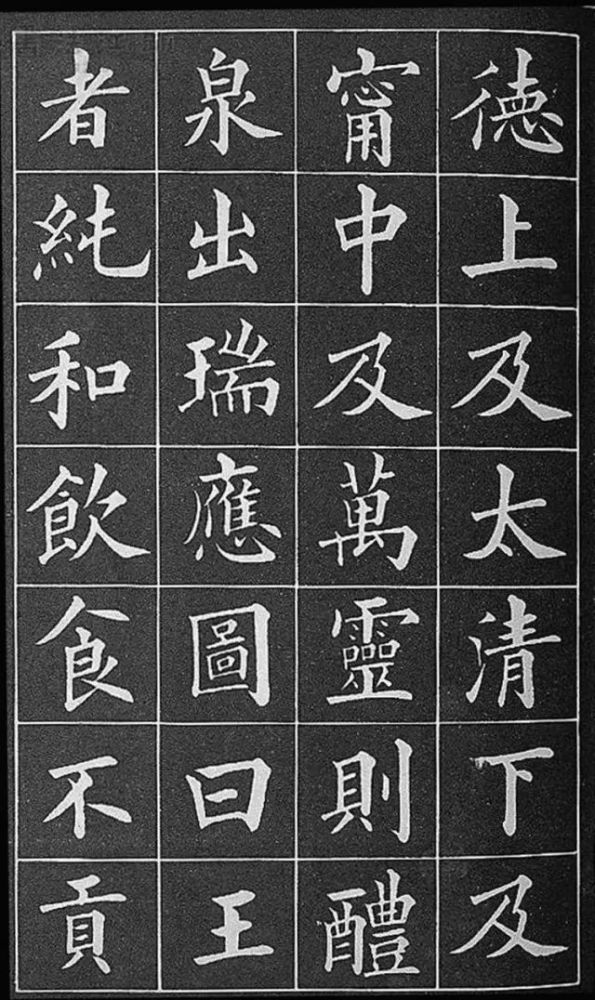 德上及太清下及
甯中及萬靈則醴
泉出瑞應圖曰王
者純和飲食不貢